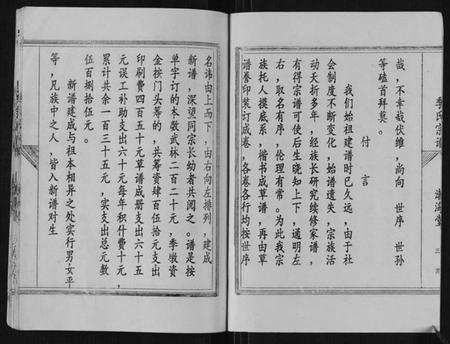 季氏宗谱
渤海堂
哉，不幸哉伏维，尚向 世序 世孙
等磕首拜裛。
付言
我们始祖建谱时已久远，由于社
会制度不断变化，始谱遗失，宗族活
动夭折多年，经族长研究续修家谱，
有得宗谱可使后生晓知上下，通明左
右，取名有序，伦理有常。为此我宗
族托人摸底系，楷书成草谱，再由草
谱誊印装订成卷，各卷各行均按世序
名讳由上而下，由右向左排列，建成
新谱，深望同宗长幼者共阅之。谱是按
单字订的本数武林二百二十元，季墩资
金按门头筹的，共筹资肆百伍拾元支出
印刷费四百五十元宴谱成册支出六十五
元误工补助支出六十元每年积什费十元，
累计共余一百三十五元，实支出总元数
伍百捌拾伍元。
新谱建成与祖本相异之处实行男女平
等，凡族中之人，皆入新谱对生